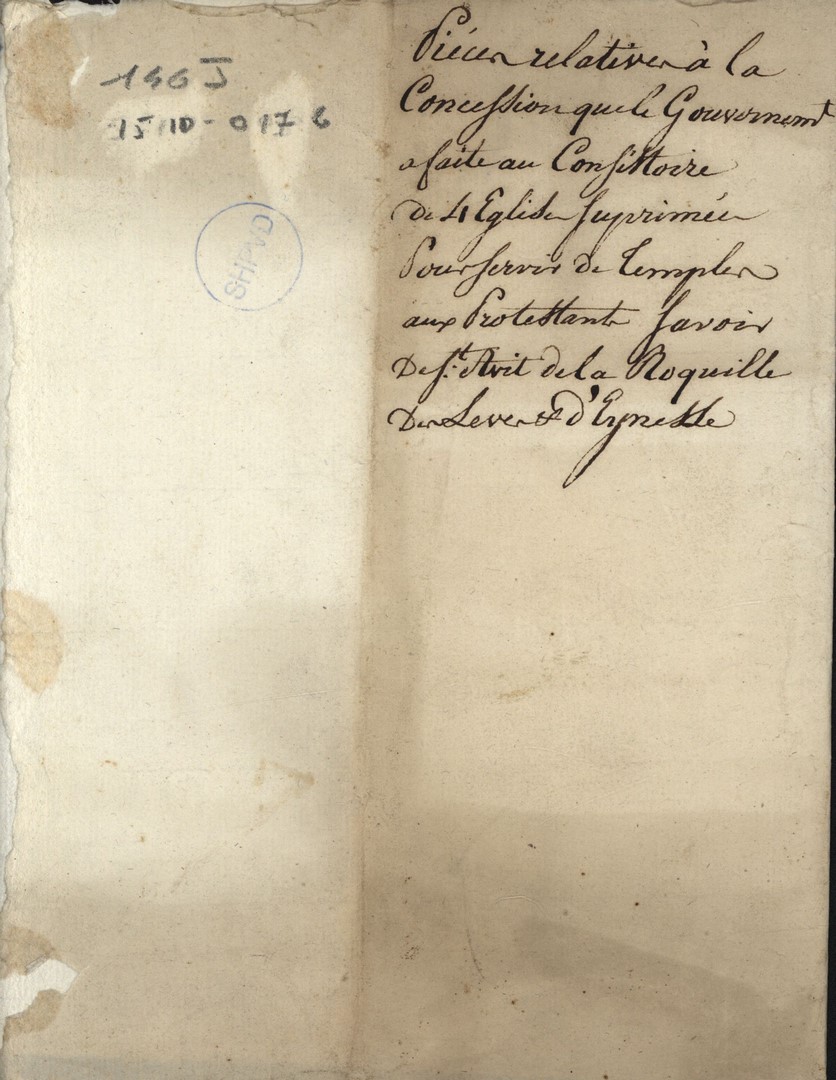 146 J
15 110 - 017 6
SHPVD
Piéces relatives à la
Concession que le Gouvernemt
a faite au Consistoire
de 4 Eglises suprimées
Pour servir de Temples
aux Protestants Savoir
De St. Avit de la Roquille
Des Leves & d'Eynesse